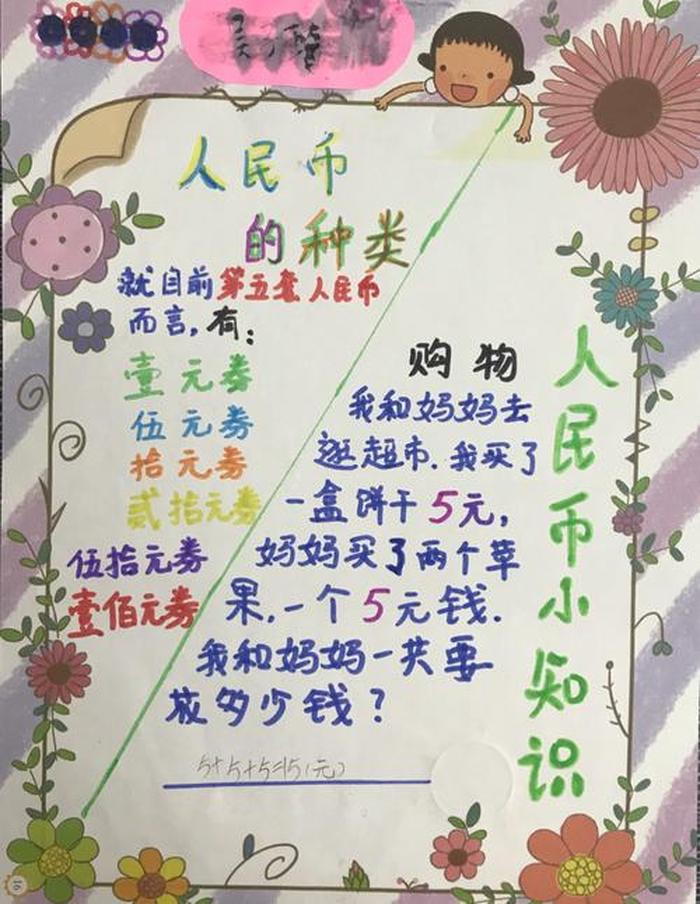 人民币
的种类
就目前第五套人民币
而言,有:
壹元券
伍元券
拾元券
贰拾元券
伍拾元券
壹佰元券
购物
我和妈妈去
逛超市.我买了
一盒饼干5元,
妈妈买了两个苹
果.一个5元钱.
我和妈妈一共要
花多少钱?
5+5+5=15(元)
人民币小知识
16